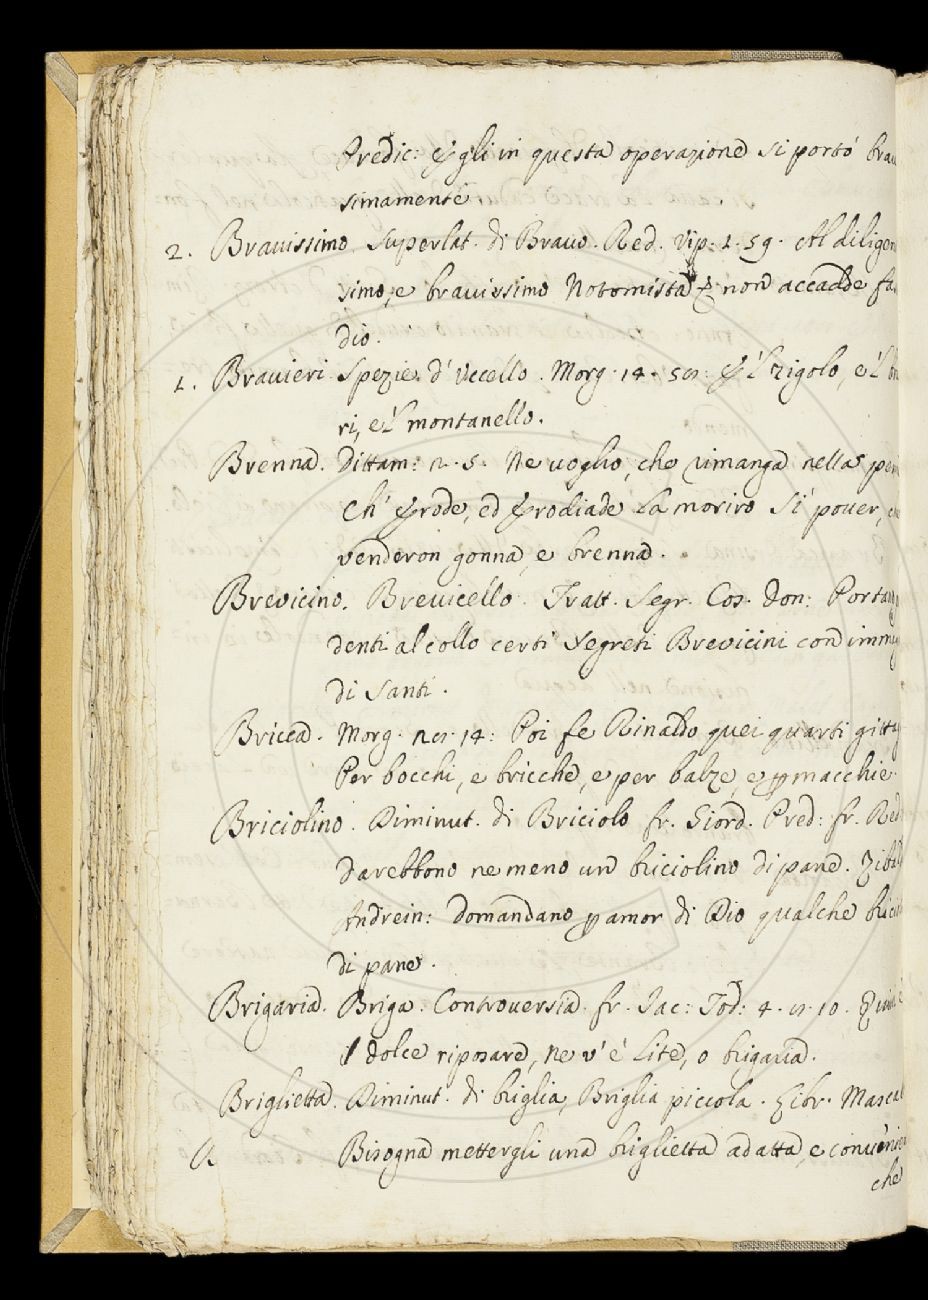 Predic: Egli in questa operazione si portò brau
simamente
2. Brauissimo Superlat. di Brauo. Red. Vip: 1. 59. Al diligen
simo, e brauissimo Notomista non accadde fa
dio.
1. Brauieri Spezie d'Uccello. Morg. 14. E'l zigolo, e'l br
ri, e'l montanello.
Brenna. Dittam: 2. 5. Ne uoglio, che rimanga nella pen
Ch' Erode, ed Erodiade là moriro Sì pouer, che
venderon gonna, e brenna.
Brevicino. Breuicello. Tratt. Segr. Cos. Don: Portan
denti al collo certi segreti Brevicini con immag
di Santi.
Bricca. Morg. 14: Poi fe Rinaldo quei quarti gittar
Per bocchi, e bricche, e per balze, e p macchie
Briciolino. Diminut. di Briciolo fr. Giord. Pred: fr. Red
Darebbono ne meno un briciolino di pane. Zibal
Andrein: Domandano p amor di Dio qualche bricio
di pane.
Brigaria. Briga. Controversia. fr. Iac: Tod: 4. 10. Quivi è
l dolce riposare, ne v'è lite, o brigaria.
Briglietta. Diminut. di briglia, Briglia piccola. Libr. Mascal
Bisogna mettergli una briglietta adatta, e convenien
che